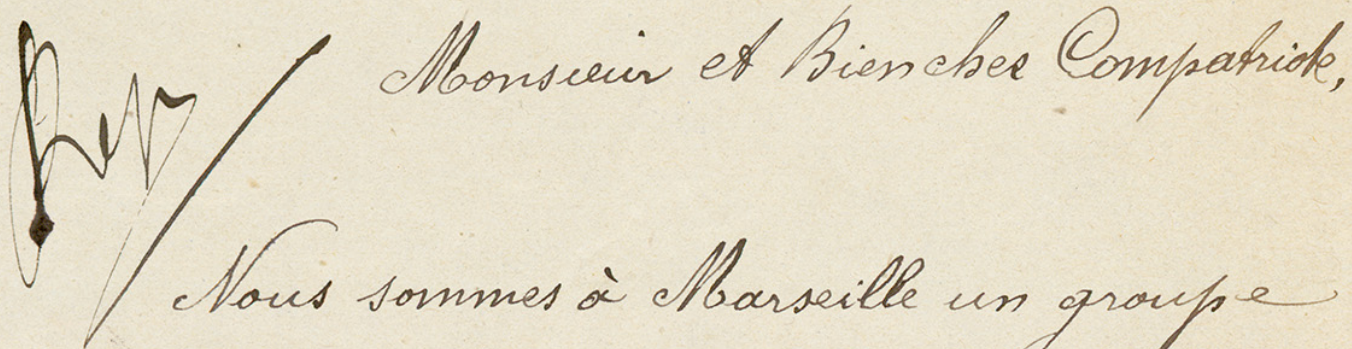 Rep/
Monsieur et Bien cher Compatriote,
Nous sommes à Marseille un groupe